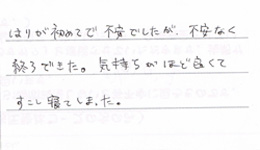 はりが初めてで不安でしたが、不安なく
終了できた。気持ちがほど良くて
すこし寝てしまった。